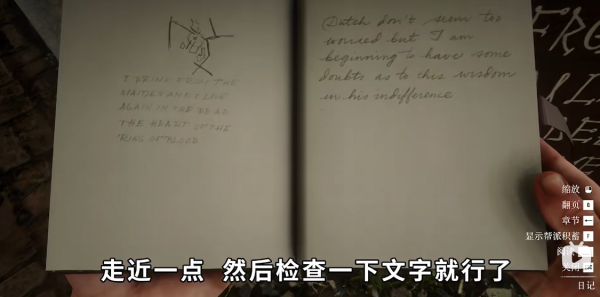 I DRINK FROM THE
MAIDEN AND LIVE
AGAIN IN THE
THE HEART OF THE
RING OF BLOOD
Dutch don't seem too
worried but I am
beginning to have some
doubts as to this wisdom
in his indifference
缩放
翻页
章节
显示帮派积蓄
日记
走近一点 然后检查一下文字就行了